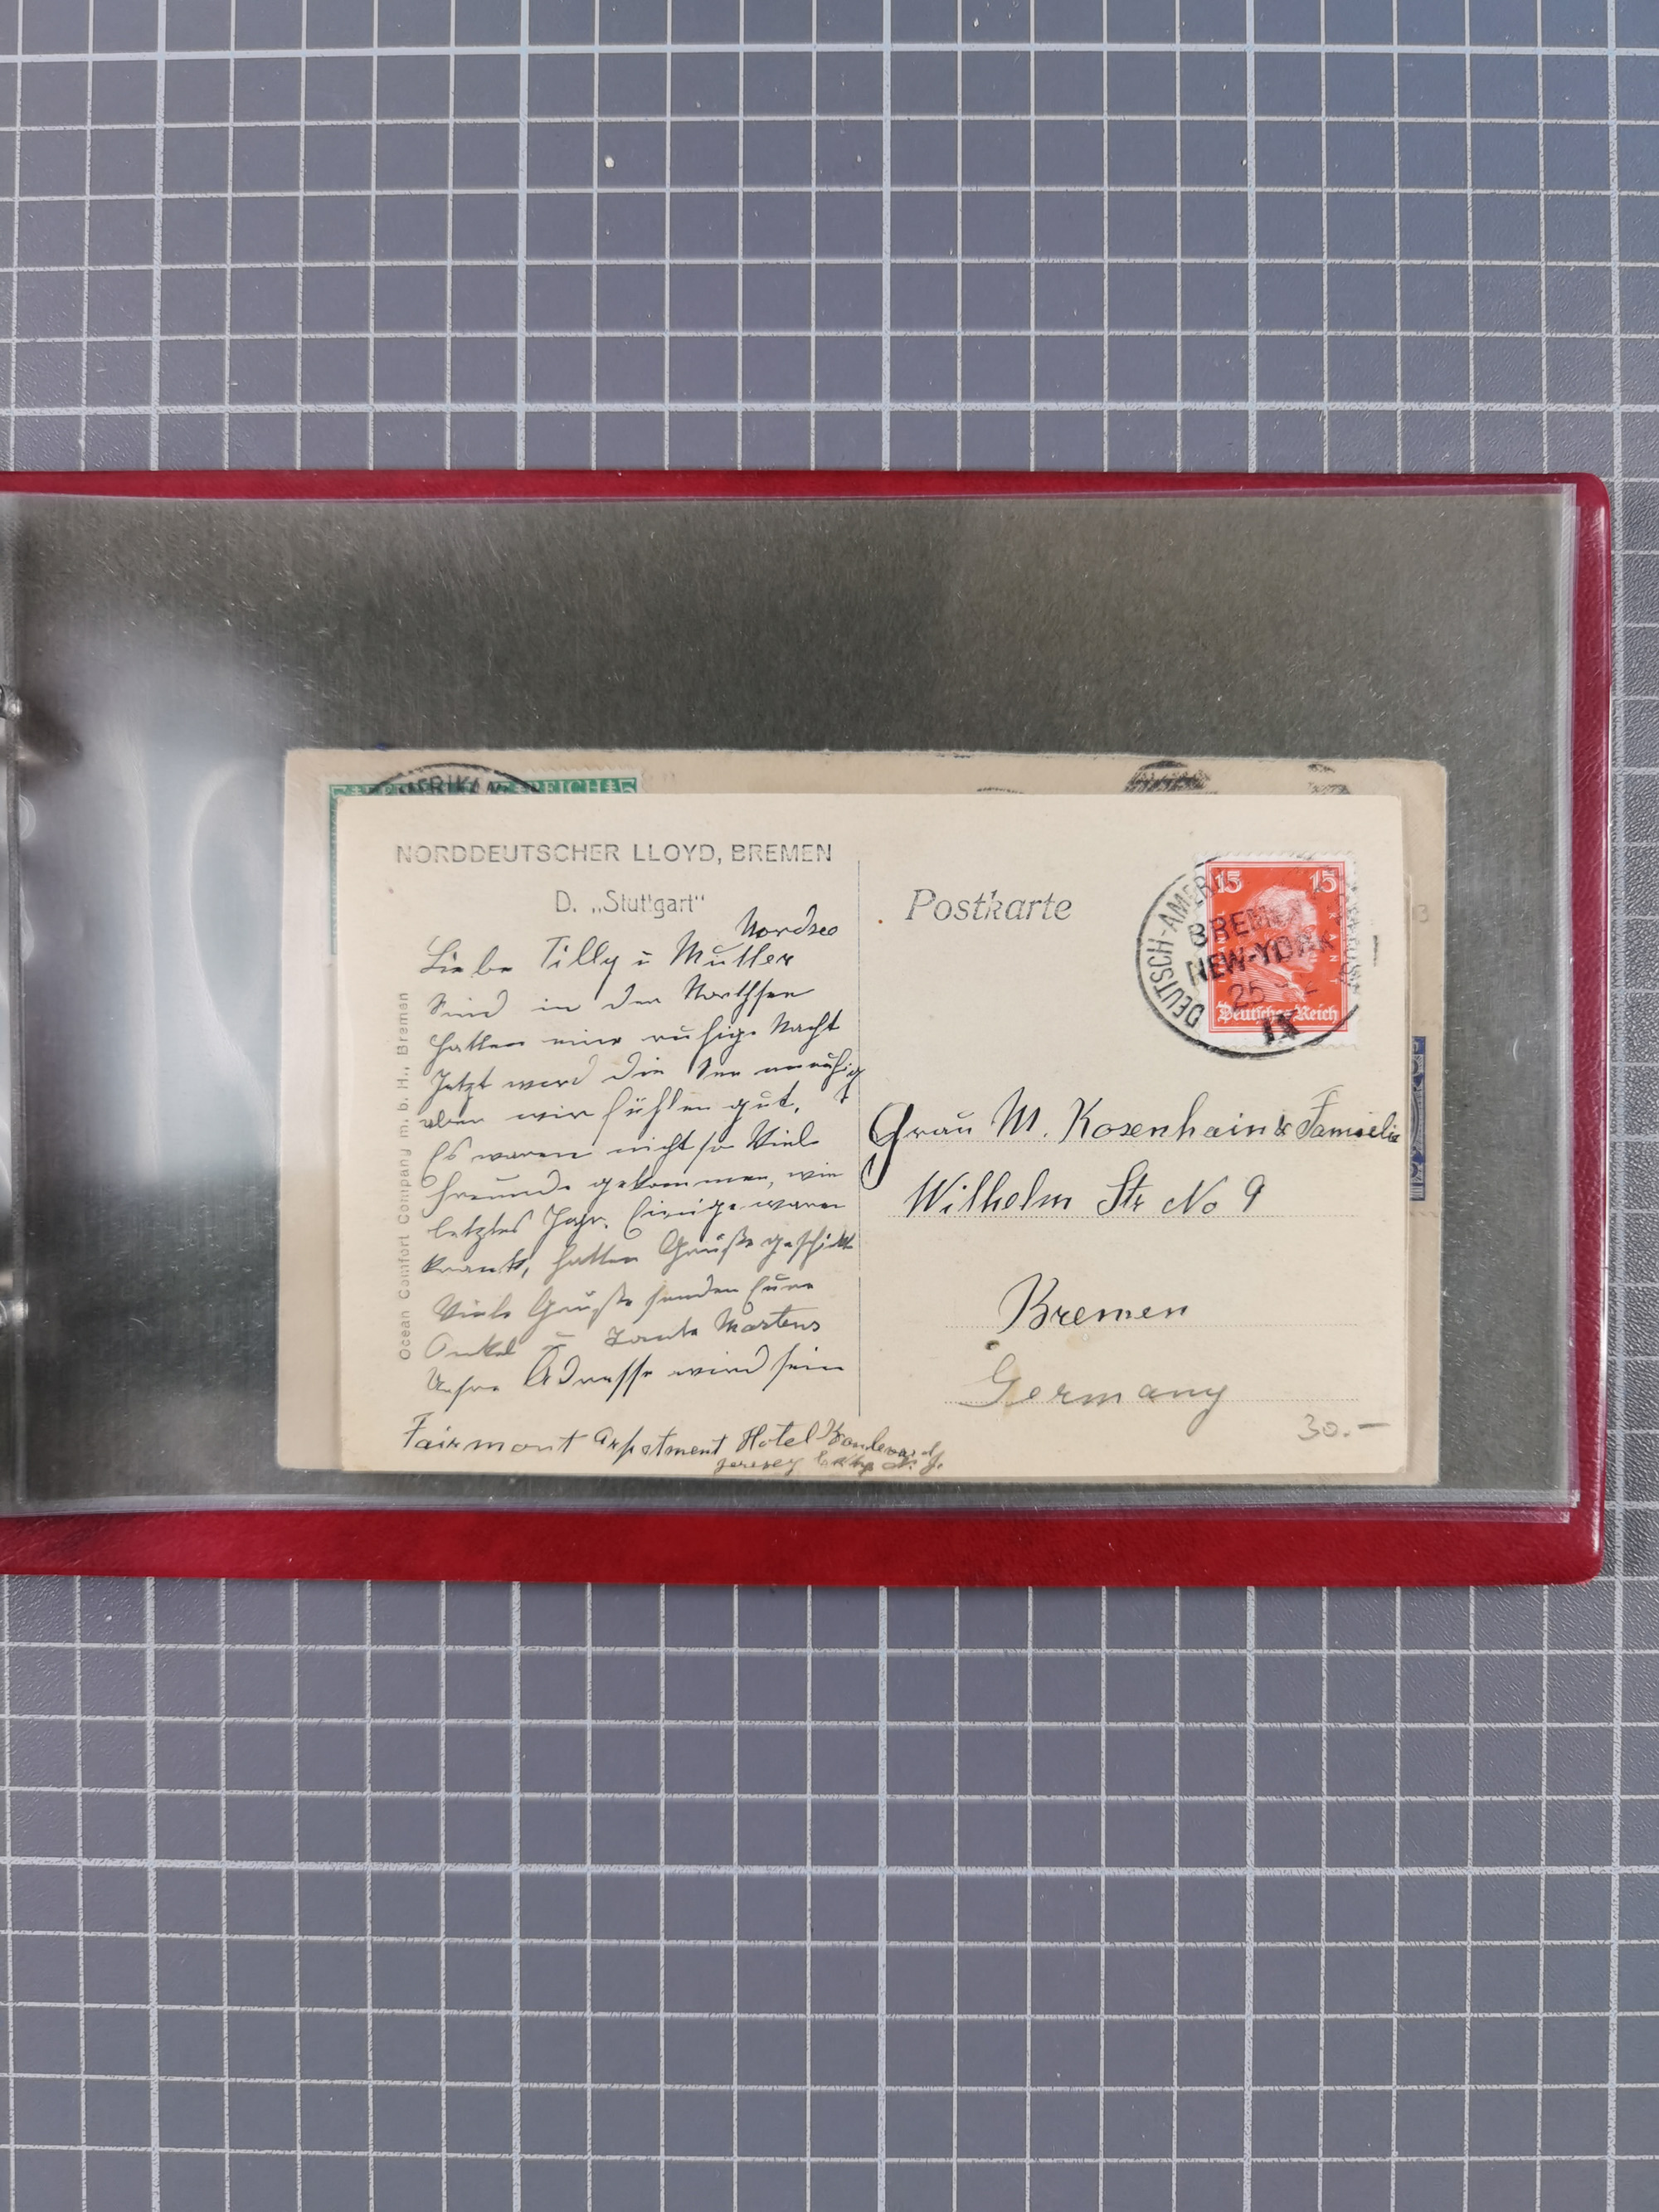 AMERIKAN
REICH
NORDDEUTSCHER LLOYD, BREMEN
D. „Stuttgart“
Nordsee
Liebe Tilly u Mutter
Sind in der Northsee
hatten eine ruhige Nacht
Jetzt werd die See unruhig
aber wir fühlen gut.
Es waren nicht so Viele
Freunde gekommen, wie
letztes Jahr. Einige waren
krank, hatten Grüße geschikt
Viele Grüße senden Eure
Onkel u Tante Martens
Unsere Adresse wird sein
Fairmont Hotel
Jersey City N. J.
Ocean Comfort Company m. b. H., Bremen
Postkarte
DEUTSCH-AMERIK
BREMEN
NEW-YORK
25
IX
15 15
Deutsches Reich
Frau M. Rosenhain &
Wilhelm Str No 9
Bremen
Germany
30.-